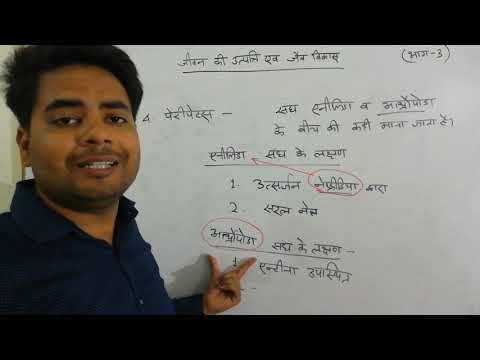 जीवन की उत्पत्ति एवं जैव विकास (भाग-3)
4. पेरीपेटस - संघ एनीलिडा व आर्थ्रोपोडा
के बीच की कड़ी माना जाता है।
एनीलिडा संघ के लक्षण
1. उत्सर्जन नेफ्रीडिया द्वारा
2. सरल नेत्र
आर्थ्रोपोडा संघ के लक्षण -
1. एन्टीना उपस्थित